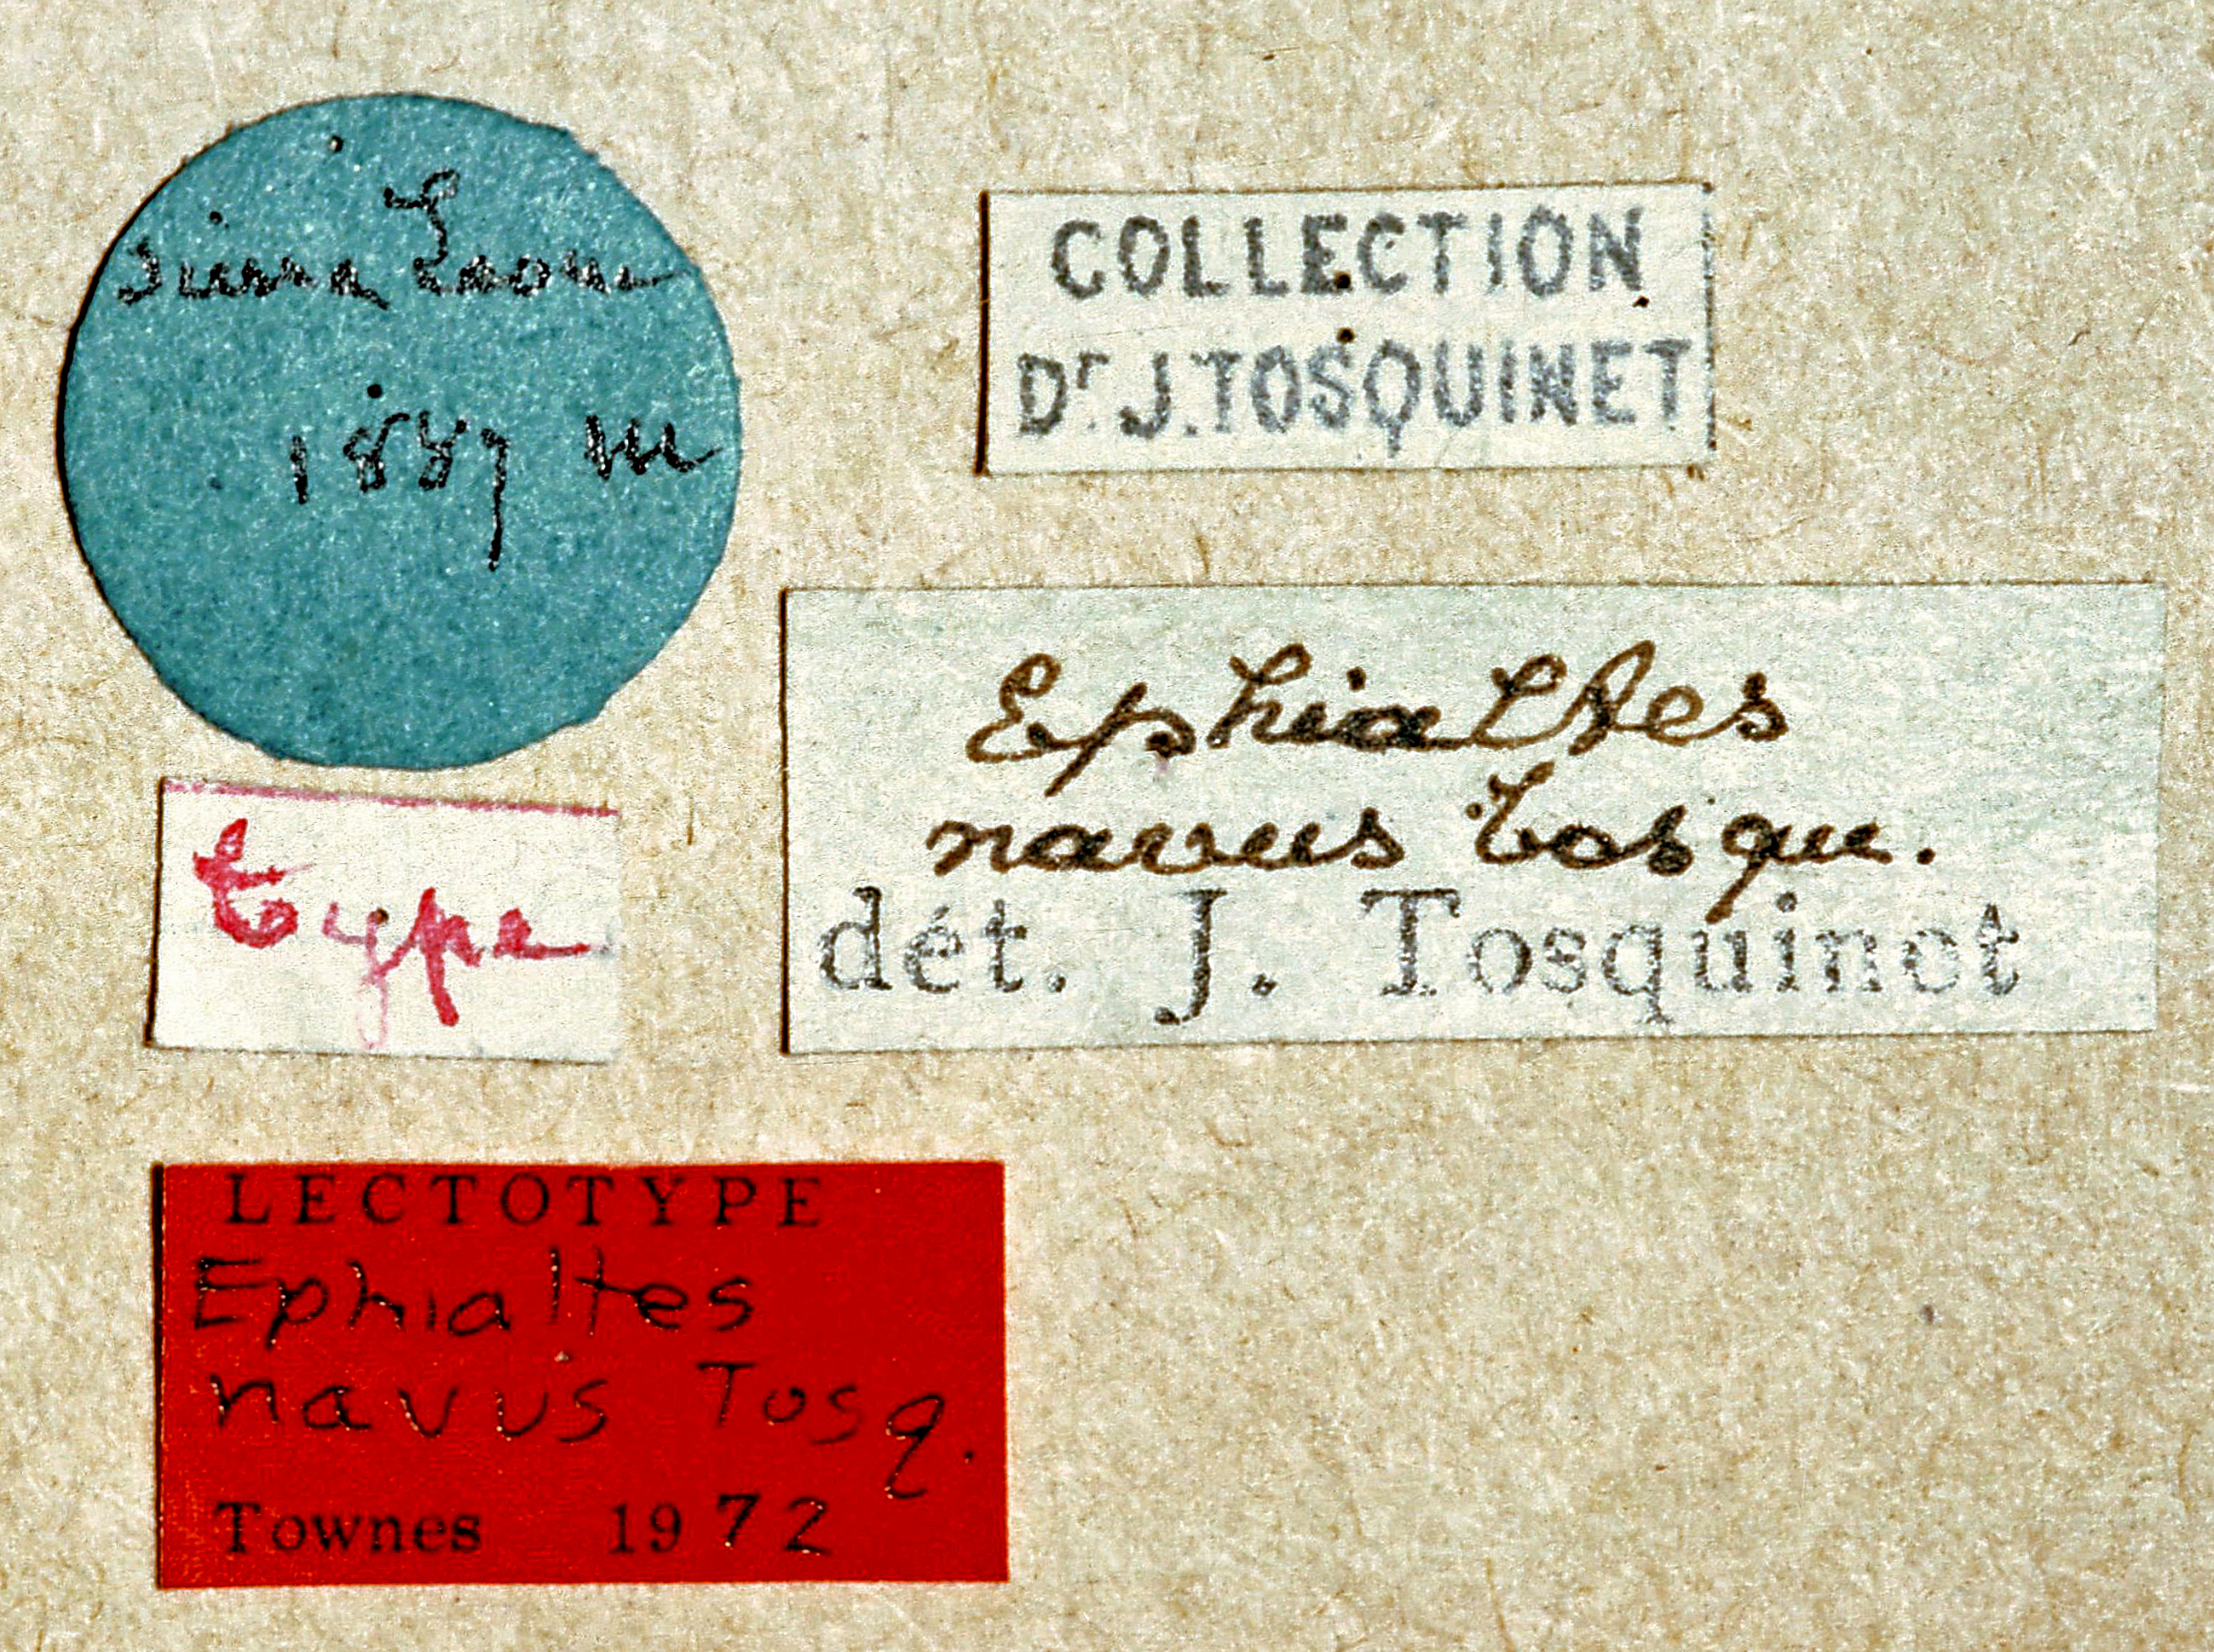 Sierra Leone
1887 m
COLLECTION
Dr J. TOSQUINET
Ephialtes
navus Tosqu.
dét. J. Tosquinet
type
LECTOTYPE
Ephialtes
navus Tosq.
Townes 1972